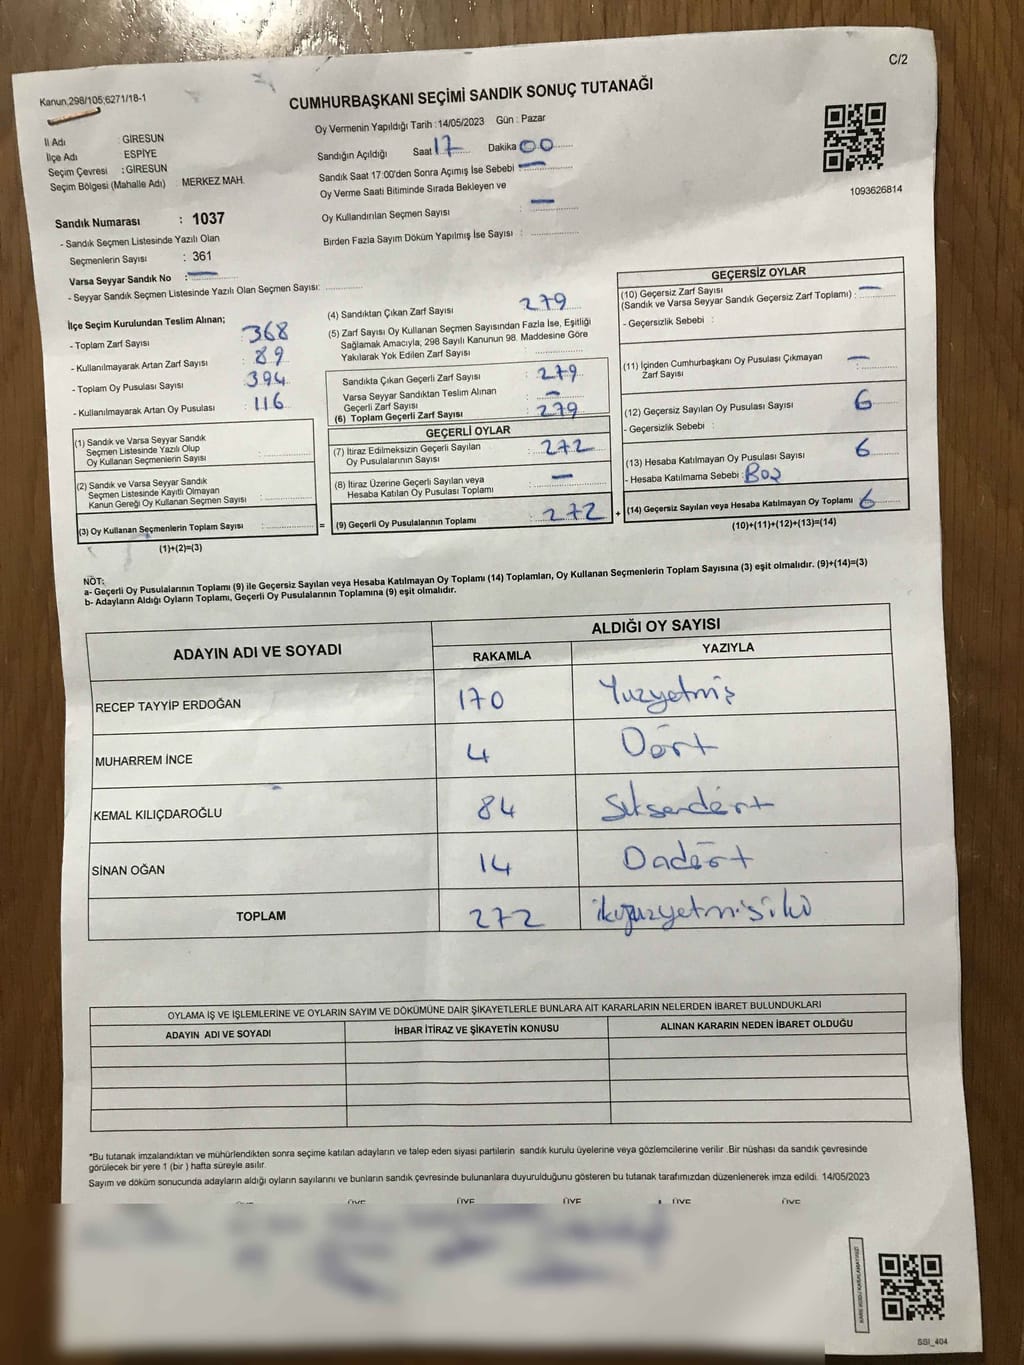 C/2
Kanun,298/105;6271/18-1
CUMHURBAŞKANI SEÇİMİ SANDIK SONUÇ TUTANAĞI
İl Adı : GİRESUN
İlçe Adı ESPİYE
Seçim Çevresi : GİRESUN
Seçim Bölgesi (Mahalle Adı) : MERKEZ MAH.
Sandık Numarası : 1037
- Sandık Seçmen Listesinde Yazılı Olan
Seçmenlerin Sayısı : 361
Varsa Seyyar Sandık No : —
- Seyyar Sandık Seçmen Listesinde Yazılı Olan Seçmen Sayısı:
Oy Vermenin Yapıldığı Tarih :14/05/2023 Gün : Pazar
Sandığın Açıldığı Saat 17 Dakika 00
Sandık Saat 17:00'den Sonra Açımış İse Sebebi —
Oy Verme Saati Bitiminde Sırada Bekleyen ve
Oy Kullandırılan Seçmen Sayısı : —
Birden Fazla Sayım Döküm Yapılmış İse Sayısı :
1093626814
İlçe Seçim Kurulundan Teslim Alınan;
- Toplam Zarf Sayısı : 368
- Kullanılmayarak Artan Zarf Sayısı : 89
- Toplam Oy Pusulası Sayısı : 394
- Kullanılmayarak Artan Oy Pusulası : 116
(1) Sandık ve Varsa Seyyar Sandık
Seçmen Listesinde Yazılı Olup
Oy Kullanan Seçmenlerin Sayısı :
(2) Sandık ve Varsa Seyyar Sandık
Seçmen Listesinde Kayıtlı Olmayan
Kanun Gereği Oy Kullanan Seçmen Sayısı :
(3) Oy Kullanan Seçmenlerin Toplam Sayısı : =
(1)+(2)=(3)
(4) Sandıktan Çıkan Zarf Sayısı : 279
(5) Zarf Sayısı Oy Kullanan Seçmen Sayısından Fazla İse, Eşitliği
Sağlamak Amacıyla, 298 Sayılı Kanunun 98. Maddesine Göre
Yakılarak Yok Edilen Zarf Sayısı :
Sandıkta Çıkan Geçerli Zarf Sayısı : 279
Varsa Seyyar Sandıktan Teslim Alınan
Geçerli Zarf Sayısı : —
(6) Toplam Geçerli Zarf Sayısı : 279
GEÇERLİ OYLAR
(7) İtiraz Edilmeksizin Geçerli Sayılan
Oy Pusulalarının Sayısı : 272
(8) İtiraz Üzerine Geçerli Sayılan veya
Hesaba Katılan Oy Pusulası Toplamı : —
(9) Geçerli Oy Pusulalarının Toplamı : 272 +
GEÇERSİZ OYLAR
(10) Geçersiz Zarf Sayısı
(Sandık ve Varsa Seyyar Sandık Geçersiz Zarf Toplamı) : —
- Geçersizlik Sebebi :
(11) İçinden Cumhurbaşkanı Oy Pusulası Çıkmayan
Zarf Sayısı : —
(12) Geçersiz Sayılan Oy Pusulası Sayısı : 6
- Geçersizlik Sebebi :
(13) Hesaba Katılmayan Oy Pusulası Sayısı : 6
- Hesaba Katılmama Sebebi :
(14) Geçersiz Sayılan veya Hesaba Katılmayan Oy Toplamı : 6
(10)+(11)+(12)+(13)=(14)
NOT:
a- Geçerli Oy Pusulalarının Toplamı (9) ile Geçersiz Sayılan veya Hesaba Katılmayan Oy Toplamı (14) Toplamları, Oy Kullanan Seçmenlerin Toplam Sayısına (3) eşit olmalıdır. (9)+(14)=(3)
b- Adayların Aldığı Oyların Toplamı, Geçerli Oy Pusulalarının Toplamına (9) eşit olmalıdır.
ADAYIN ADI VE SOYADI ALDIĞI OY SAYISI
RAKAMLA YAZIYLA
RECEP TAYYİP ERDOĞAN 170 Yüzyetmiş
MUHARREM İNCE 4 Dört
KEMAL KILIÇDAROĞLU 84 Seksendört
SİNAN OĞAN 14 Ondört
TOPLAM 272 ikiyüzyetmişiki
OYLAMA İŞ VE İŞLEMLERİNE VE OYLARIN SAYIM VE DÖKÜMÜNE DAİR ŞİKAYETLERLE BUNLARA AİT KARARLARIN NELERDEN İBARET BULUNDUKLARI
ADAYIN ADI VE SOYADI İHBAR İTİRAZ VE ŞİKAYETİN KONUSU ALINAN KARARIN NEDEN İBARET OLDUĞU
*Bu tutanak imzalandıktan ve mühürlendikten sonra seçime katılan adayların ve talep eden siyasi partilerin sandık kurulu üyelerine veya gözlemcilerine verilir .Bir nüshası da sandık çevresinde
görülecek bir yere 1 (bir ) hafta süreyle asılır.
Sayım ve döküm sonucunda adayların aldığı oyların sayılarını ve bunların sandık çevresinde bulunanlara duyurulduğunu gösteren bu tutanak tarafımızdan düzenlenerek imza edildi. 14/05/2023
ÜYE ÜYE ÜYE ÜYE ÜYE
SSI_404